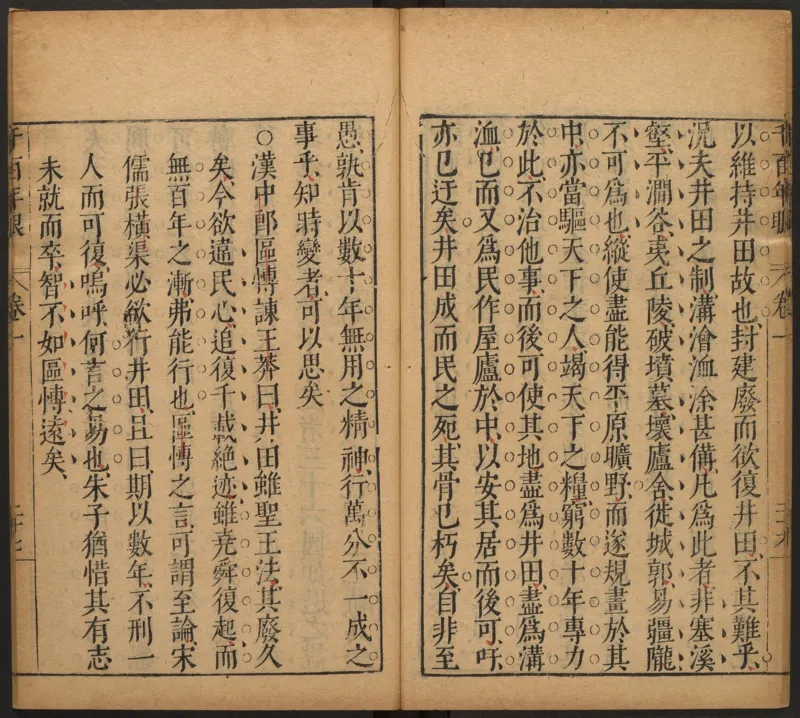 千百年眼 卷一
以維持井田故也封建廢而欲復井田不其難乎
況夫井田之制溝澮洫涂甚備凡爲此者非塞溪
壑平澗谷夷丘陵破墳墓壞廬舍徙城郭易疆隴
不可爲也縱使盡能得平原曠野而遂規畫於其
中亦當驅天下之人竭天下之糧窮數十年專力
於此不治他事而後可使其地盡爲井田盡爲溝
洫已而又爲民作屋廬於中以安其居而後可吁
亦已迂矣井田成而民之死其骨已朽矣自非至
愚孰肯以數十年無用之精神行萬分不一成之
事乎知時變者可以思矣
○漢中郎區博諫王莽曰井田雖聖王法其廢久
矣今欲違民心追復千載絕迹雖堯舜復起而
無百年之漸弗能行也區博之言可謂至論宋
儒張橫渠必欲行井田且曰期以數年不刑一
人而可復嗚呼何言之易也朱子猶惜其有志
未就而卒智不如區博遠矣
千百年眼 卷一